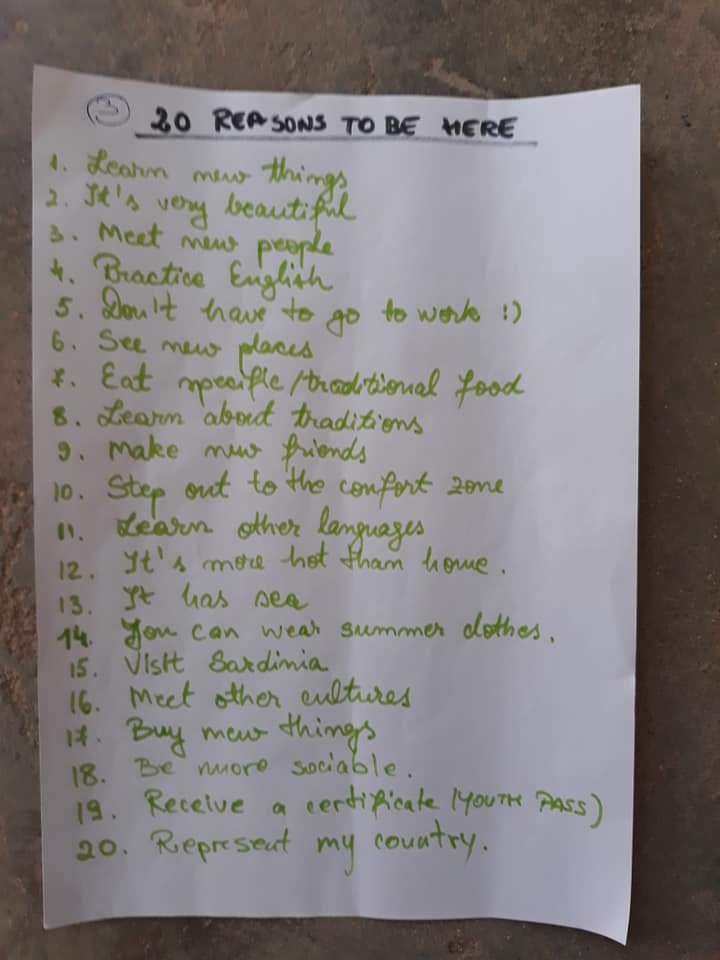 3 20 REASONS TO BE HERE
1. Learn new things
2. It's very beautiful
3. Meet new people
4. Practice English
5. Don't have to go to work :)
6. See new places
7. Eat specific/traditional food
8. Learn about traditions
9. Make new friends
10. Step out to the confort zone
11. Learn other languages
12. It's more hot than home.
13. It has sea
14. You can wear summer clothes.
15. Visit Sardinia
16. Meet other cultures
17. Buy new things
18. Be more sociable.
19. Receive a certificate (YOUTH PASS)
20. Represent my country.